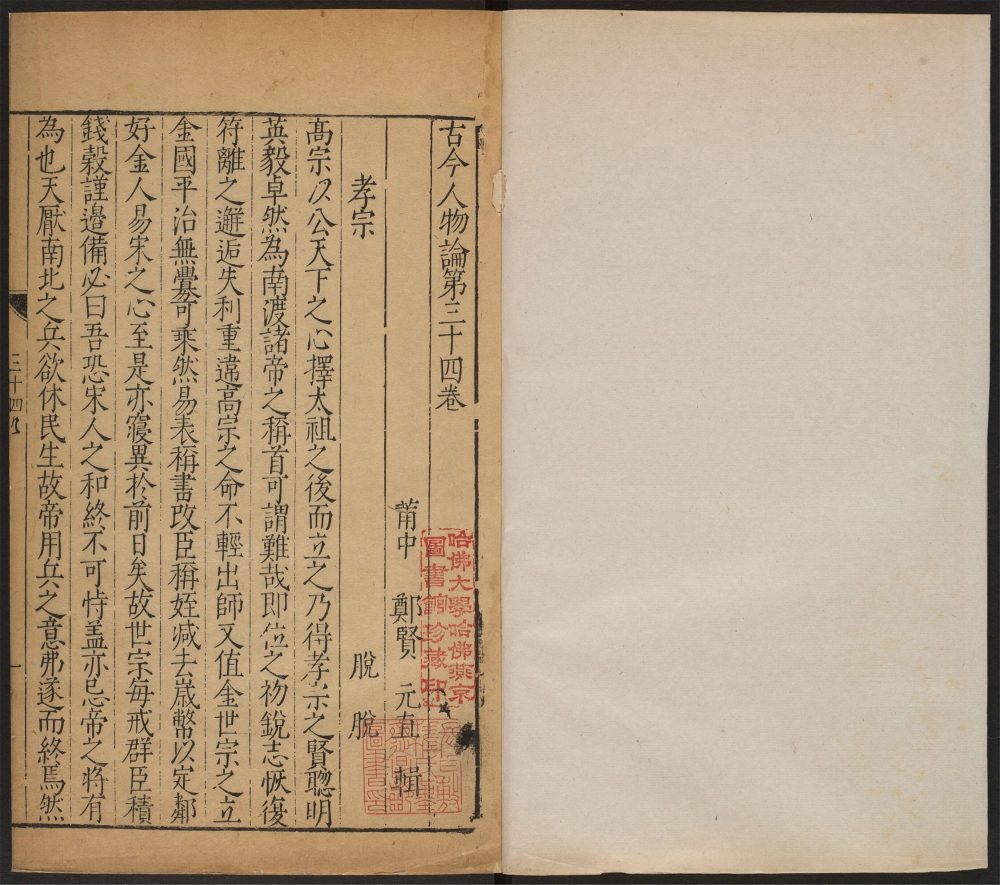 古今人物論第三十四卷
莆中 鄭賢 元直 輯
孝宗 脫脫
高宗以公天下之心擇太祖之後而立之乃得孝宗之賢聰明
英毅卓然為南渡諸帝之稱首可謂難哉即位之初銳志恢復
符離之邂逅失利重違高宗之命不輕出師又值金世宗之立
金國平治無釁可乘然易表稱書改臣稱姪減去嵗幣以定鄰
好金人易宋之心至是亦寖異於前日矣故世宗每戒群臣積
錢穀謹邊備必曰吾恐宋人之和終不可恃盖亦忌帝之將有
為也天厭南北之兵欲休民生故帝用兵之意弗遂而終焉然
三十四
一
哈佛大學哈佛燕京
圖書館珍藏印